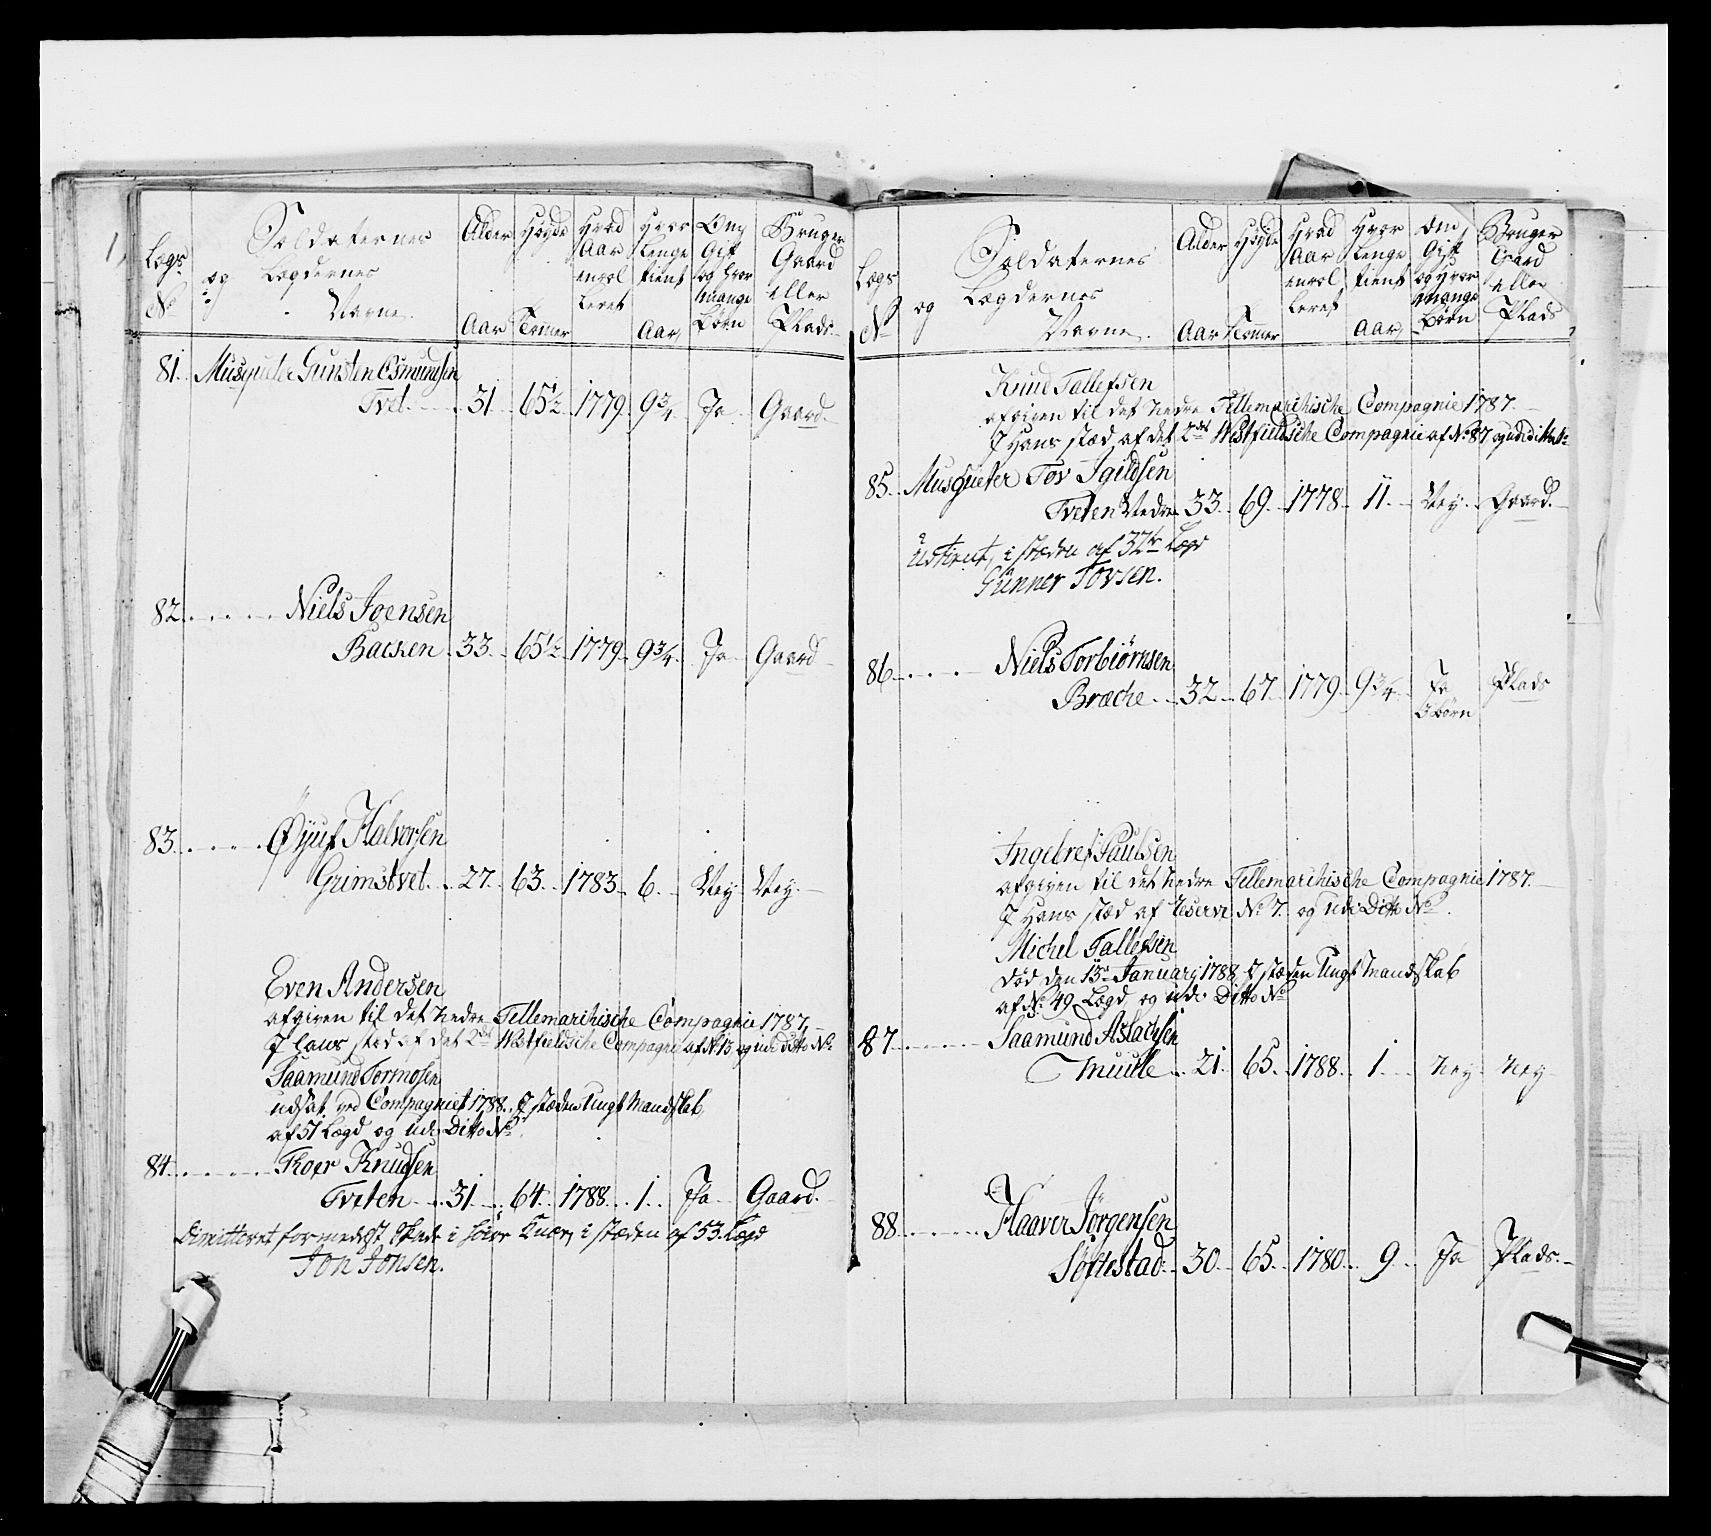 Lægs No
Soldaternes og Lægdernes Navne.
Alder Aar
Høyde Tommer
Hvad Aar enrolleret
Hvor Lenge tient Aar
Om Gift og hvor mange Børn
Bruger Gaard eller Plads
81. Musqueter Gunsten Osmundsen
Tvet 31 65½ 1779 9¾ Ja Gaard
82 Niels Joensen
Backen 33 65½ 1779 9¾ Ja Gaard
83 Øyuf Halvorsen
Grimstvet 27 63 1783 6 Ney Ney
Even Andersen
afgiven til det Nedre Tellemarchische Compagnie 1787
I hans sted af det 2det Westfieldsche Compagnie af No 15 og udi ditto No
Saamund Tormosen
udsat ved Compagniet 1788. I stæden Ungt Mandskab
af 51 Lægd og udi Ditto No
84 Thoer Knudsen
Tveten 31 64 1788 1 Ja Gaard
Dimitteret formedelst Skade i høire Knæ, i stæden af 53. Lægd
Jon Jonsen.
Lægs No
Soldaternes og Lægdernes Navne.
Alder Aar
Høyde Tommer
Hvad Aar enrolleret
Hvor Lenge tient Aar
Om Gift og hvor mange Børn
Bruger Gaard eller Plads
Knud Tallefsen
afgiven til det Nedre Tellemarchische Compagnie 1787.
I Hans stæd af det 2det Westfieldsche Compagnie af No 87 og udi ditto No
85 Musqueter Tov Igildsen
Tveten Nedre 33 69 1778 11 Ney Gaard
Udtient, i stæden af 32te Lægd
Gunner Tovsen.
86 Niels Torbiørnsen
Bræche 32 67 1779 9¾ Ja Plads
3 børn
Ingelref Paulsen
afgiven til det Nedre Tellemarchische Compagnie 1787.
I Hans stæd af Reserve No 7. og udi Ditto No
Michel Tallefsen
død den 15de January 1788 I stæden Ungt Mandskab
af No 49 Lægd og udi Ditto No
87 Saamund Aslachsen
Muule 21 65 1788 1 Ney Ney
88 Haaver Jørgensen
Søftestad 30 65 1780 9 Ja Plads